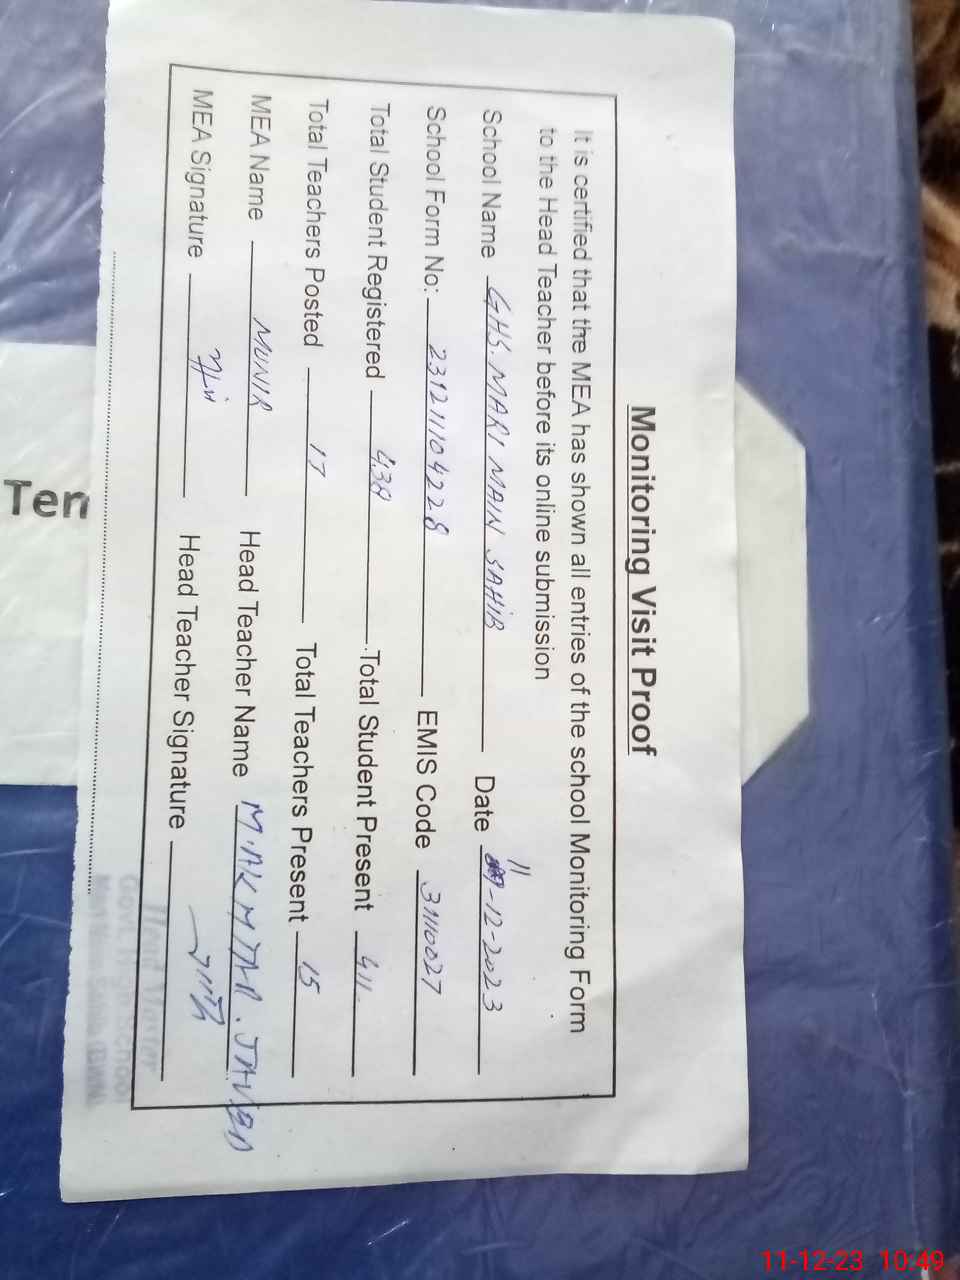 Monitoring Visit Proof
It is certified that the MEA has shown all entries of the school Monitoring Form
to the Head Teacher before its online submission
School Name GHS. MARI MAIN SAHIB Date 11-12-2023
School Form No: 231211104228 EMIS Code 31110027
Total Student Registered 438 Total Student Present 411.
Total Teachers Posted 17 Total Teachers Present 15
MEA Name MUNIR Head Teacher Name JAVED
MEA Signature Head Teacher Signature
Head Master
Govt. High School
Ten
11-12-23 10:49